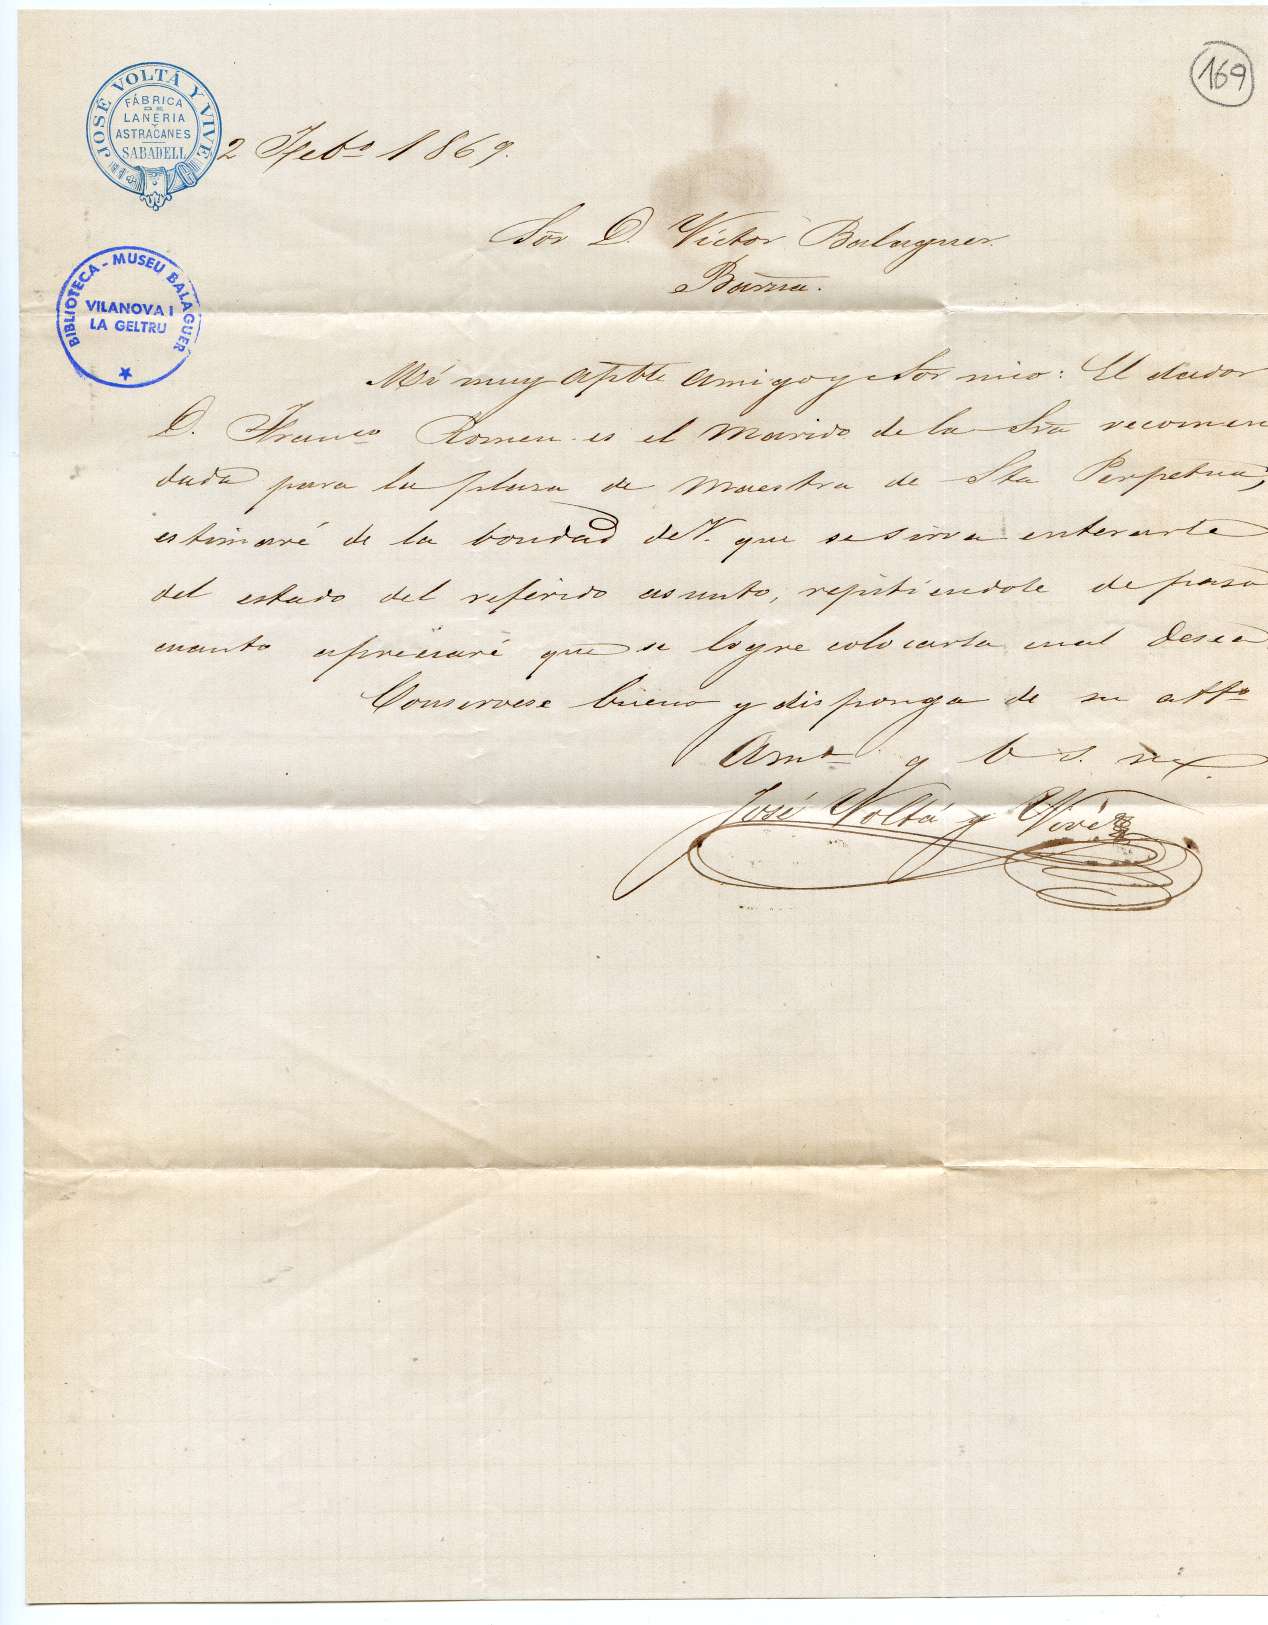 169
JOSÉ VOLTÁ Y VIVE
FÁBRICA
DE
LANERIA
Y
ASTRACANES
SABADELL
2 Febo 1869.
Sor D. Victor Balaguer
Barna.
BIBLIOTECA - MUSEU BALAGUER
VILANOVA I
LA GELTRU
Mi muy apble amigo y Sor mio: El dador
D. Franco Romeu es el Marido de la Sra recomen
dada para la plaza de Maestra de Sta Perpetua,
estimaré de la bondad de V. que se sirva enterarle
del estado del referido asunto, repitiendole de paso
cuanto apreciaré que se logre colocarla cual desea
Conservese bueno y disponga de su atto
Amo y b. s. m.
José Voltá y Vivé